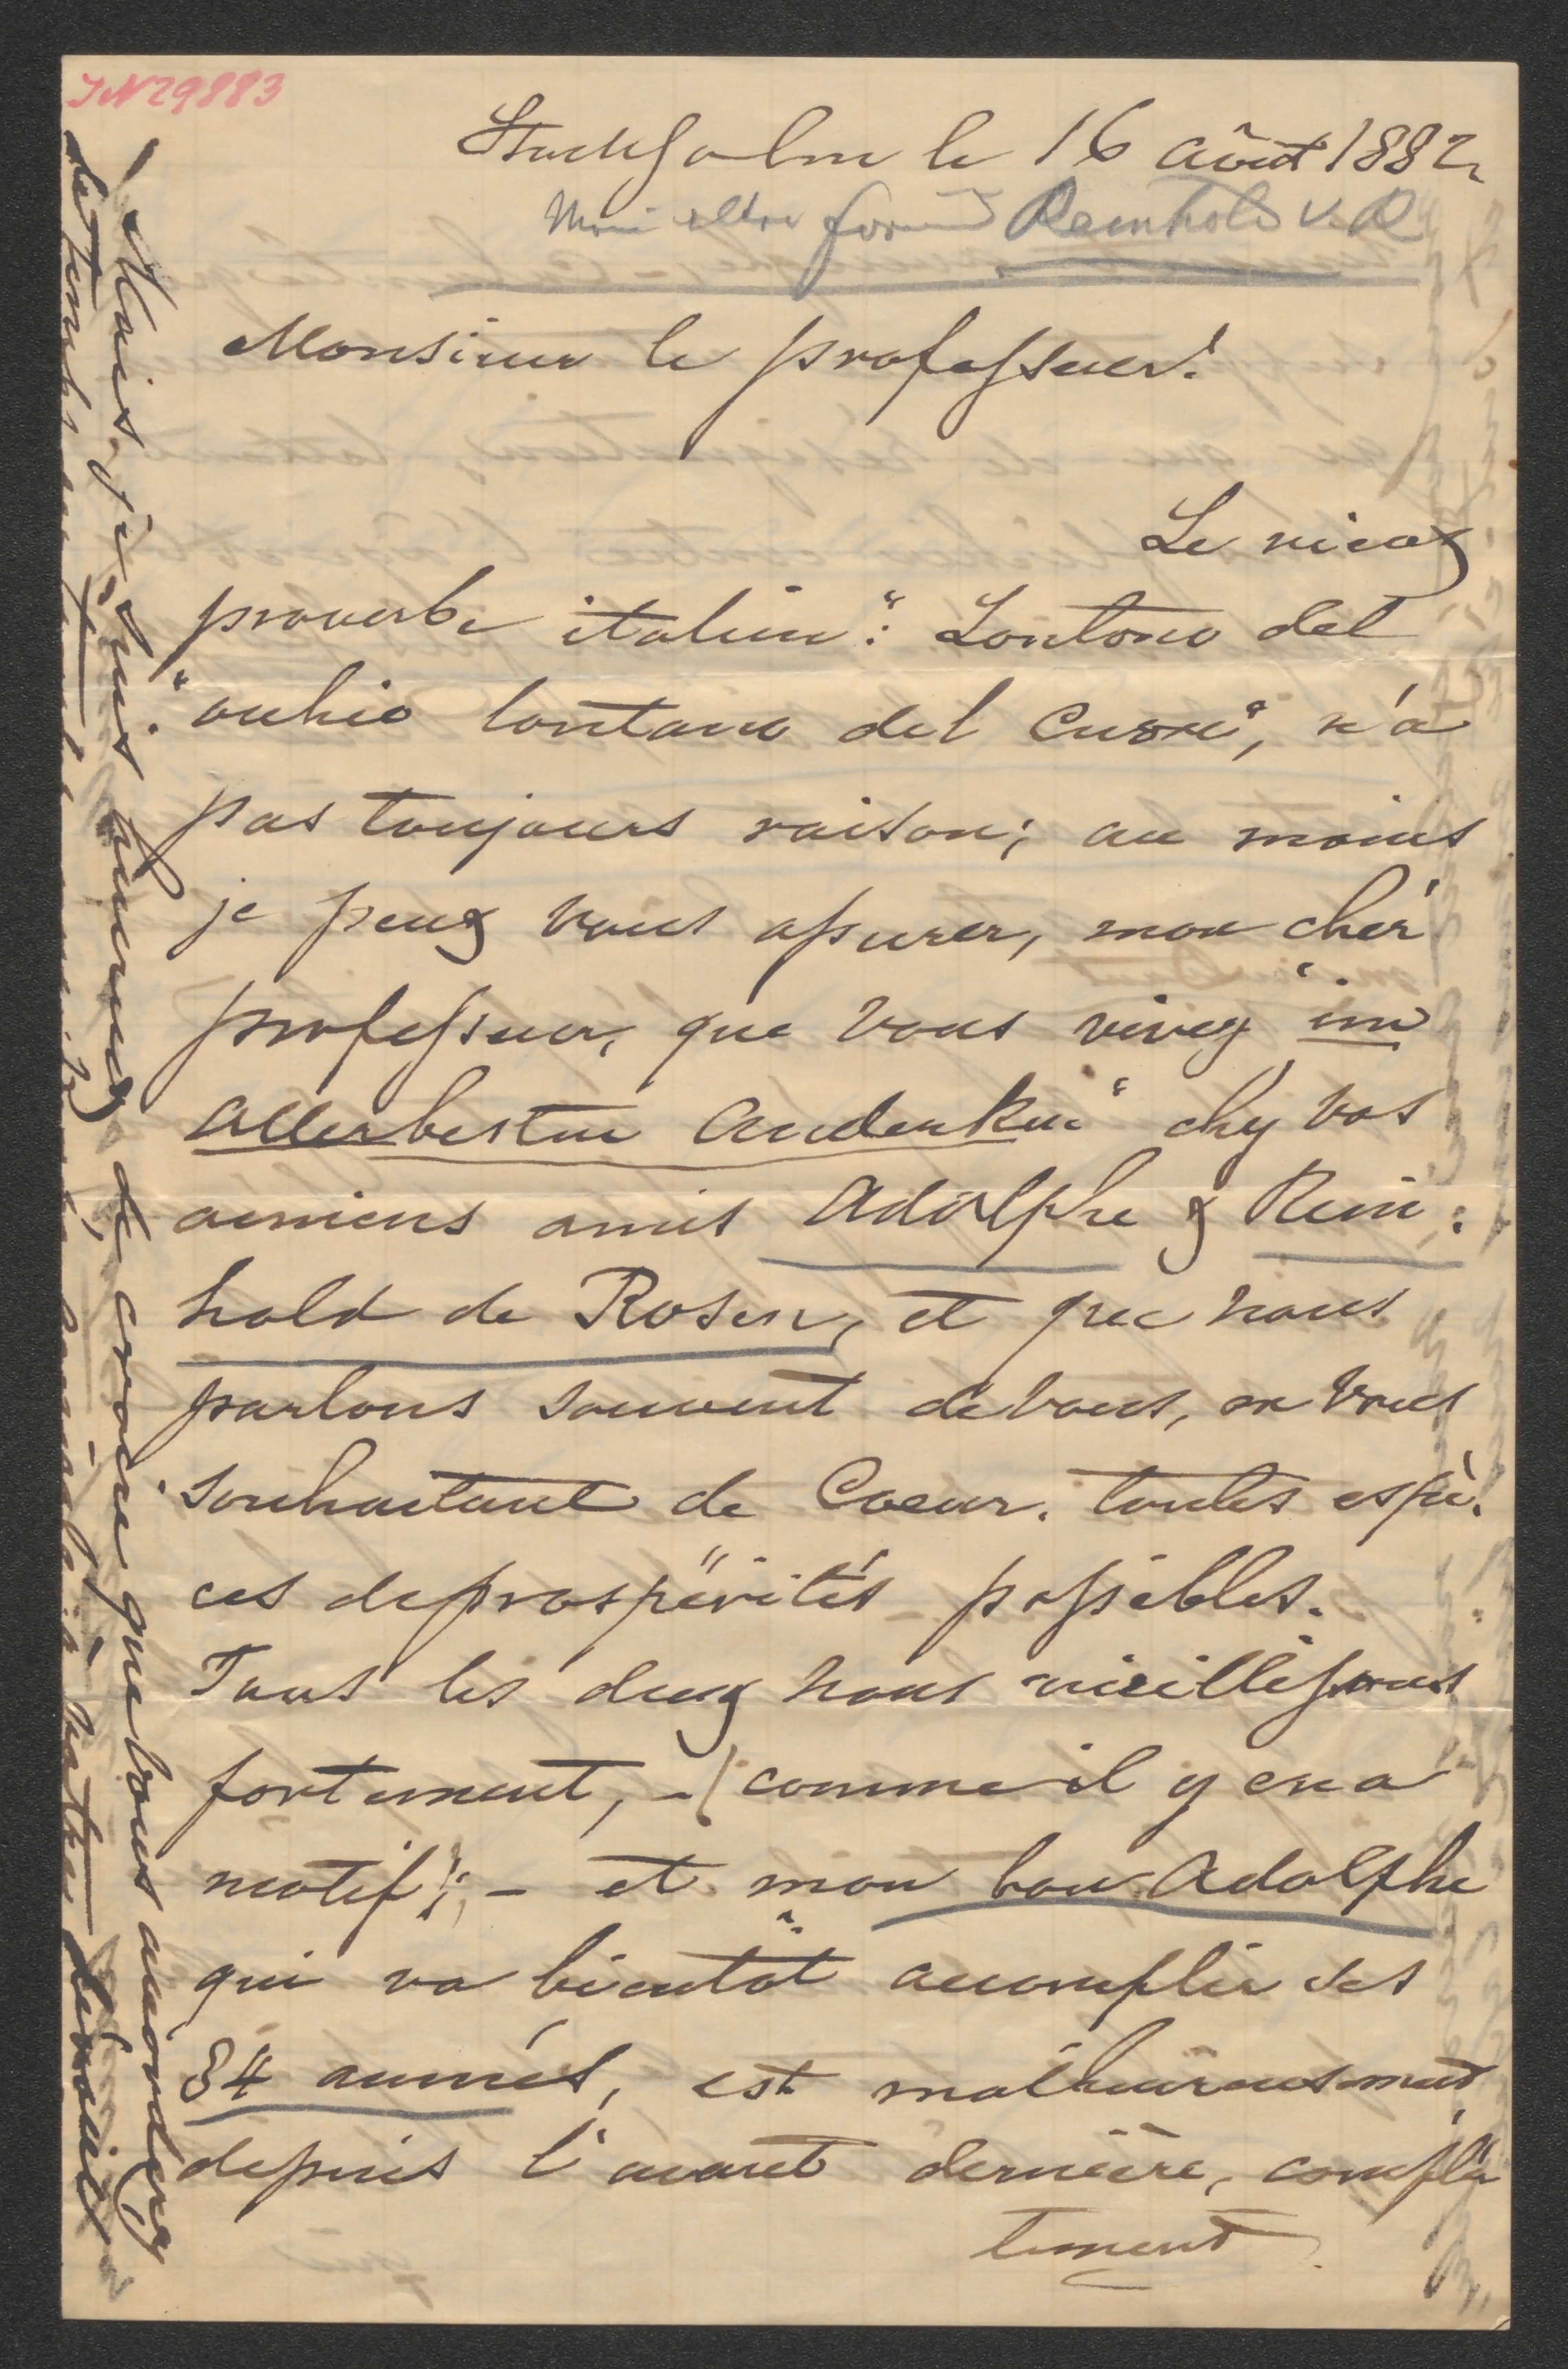 IN 29883
Stockholm le 16 aôut 1882
Reinhold v. R
Monsieur le professeur!
Le vieux
proverbe italien: "Lontano del
"occhio lontano del cuore", n'a
pas toujours raison; au moins
je peux vous assurer, mon chér
professeur, que vous vivez "im
allerbesten Andenken" chez vos
anciens amis Adolphe & Rein:
hold de Rosen, et que nous
parlons souvent de vous, en vous
souhaitant de Coeur. toutes espè:
ces de prospérités possibles.
Tous les deux nous vieillissons
fortement, – (comme il y en a
motif); – et mon bon Adolphe
qui va bientôt accomplir ses
84 années, est malheureusement
depuis l'avant dernière, complè
tement
Mais je suis de croire que vous accorderez